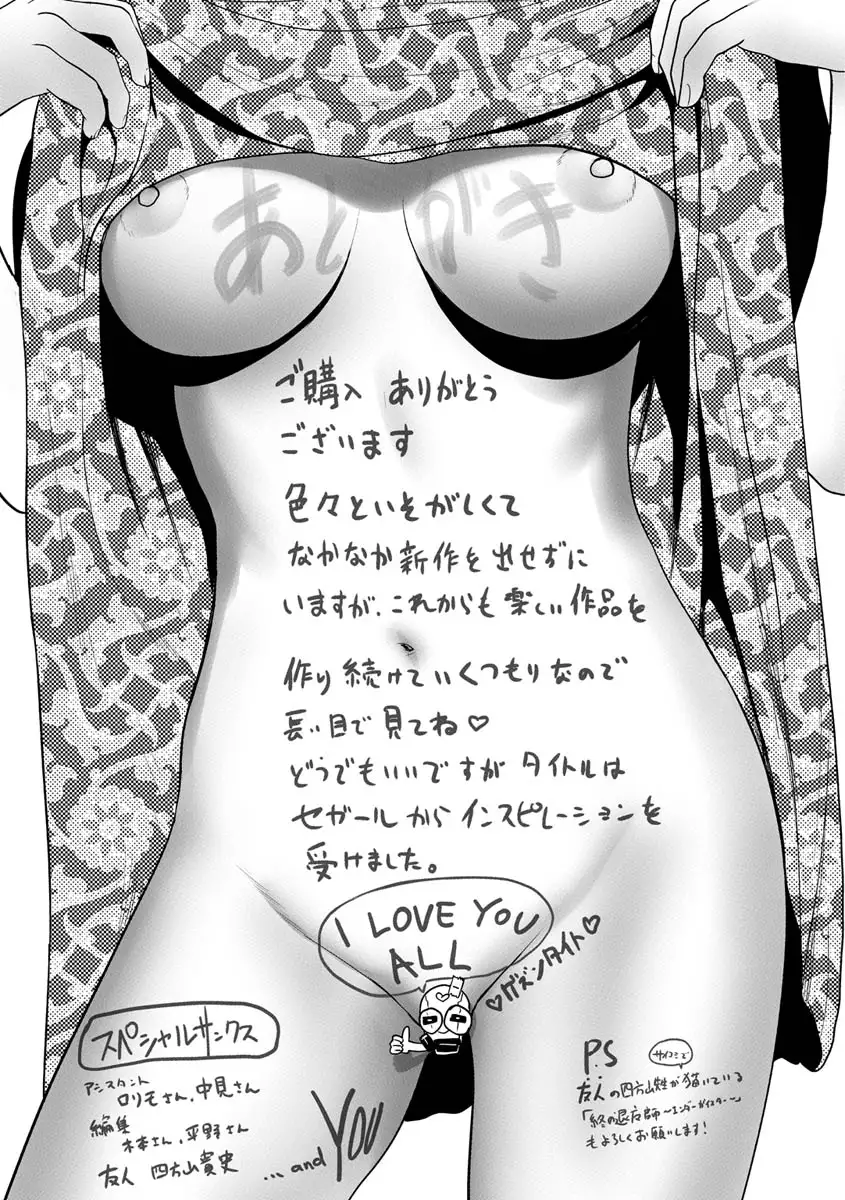 あとがき
ご購入 ありがとう
ございます
色々といそがしくて
なかなか新作を出せずに
いますが、これからも楽しい作品を
作り続けていくつもりなので
長い目で見てね♡
どうでもいいですが タイトルは
セガールからインスピレーションを
受けました。
I LOVE YOU
ALL
♡ゲズンタイト♡
スペシャルサンクス
アシスタント
ロリモさん、中見さん
編集
木本さん、平野さん
友人 四方山貴史
...and YOU
P.S
サイコミで
友人の四方山貴史が描いている
「終の退魔師 〜エンダーガイスター〜」
もよろしくお願いします!